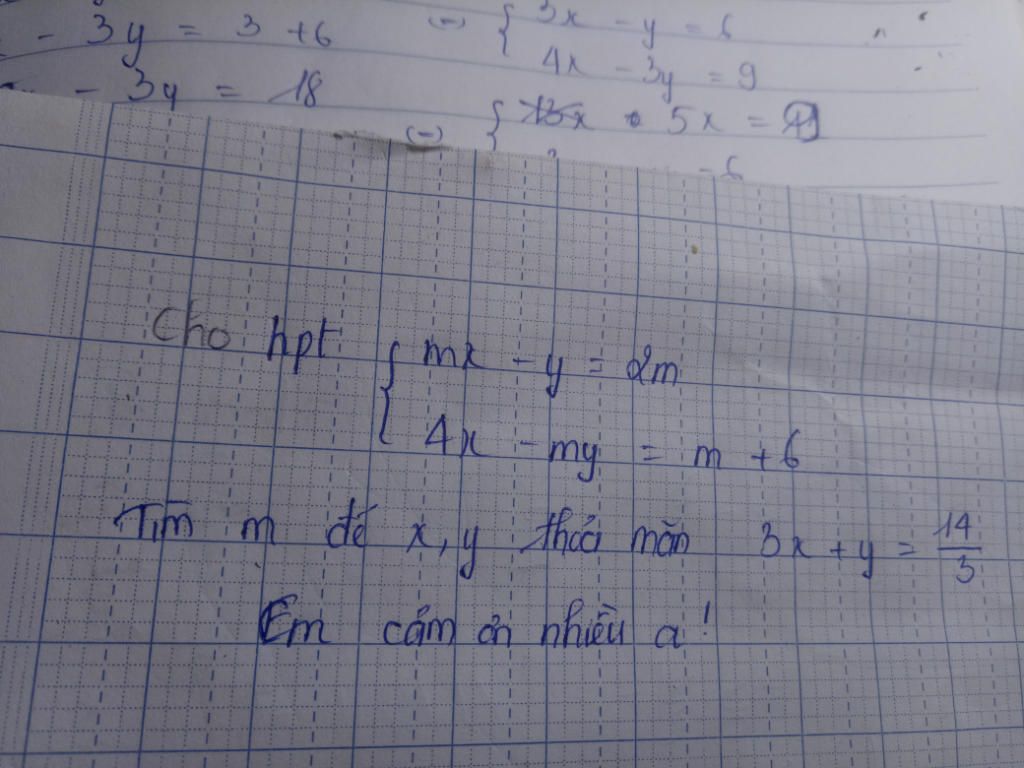 - 3y = 3 + 6
(-) { 3x - y = 6
4x - 3y = 9
- 3y = 18
(-) { 5x =
- 6
Cho hpt { mx - y = 2m
4x - my = m + 6
Tìm m để x, y thỏa mãn 3x + y = 14/3
Em cảm ơn nhiều ạ!